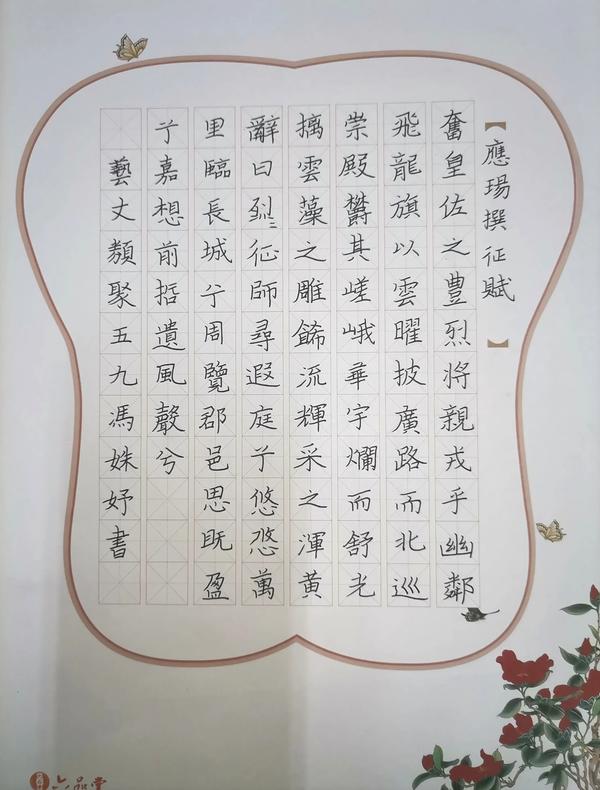 【應瑒撰征賦】
奮皇佐之豊烈將親戎乎幽鄰
飛龍旗以雲曜披廣路而北巡
崇殿欝其嵯峨華宇爛而舒光
摛雲藻之雕飾流輝采之渾黄
辭曰烈〻征師尋遐庭兮悠悠萬
里臨長城兮周覽郡邑思既盈
兮嘉想前哲遺風聲兮
藝文類聚五九馮姝妤書
六品堂